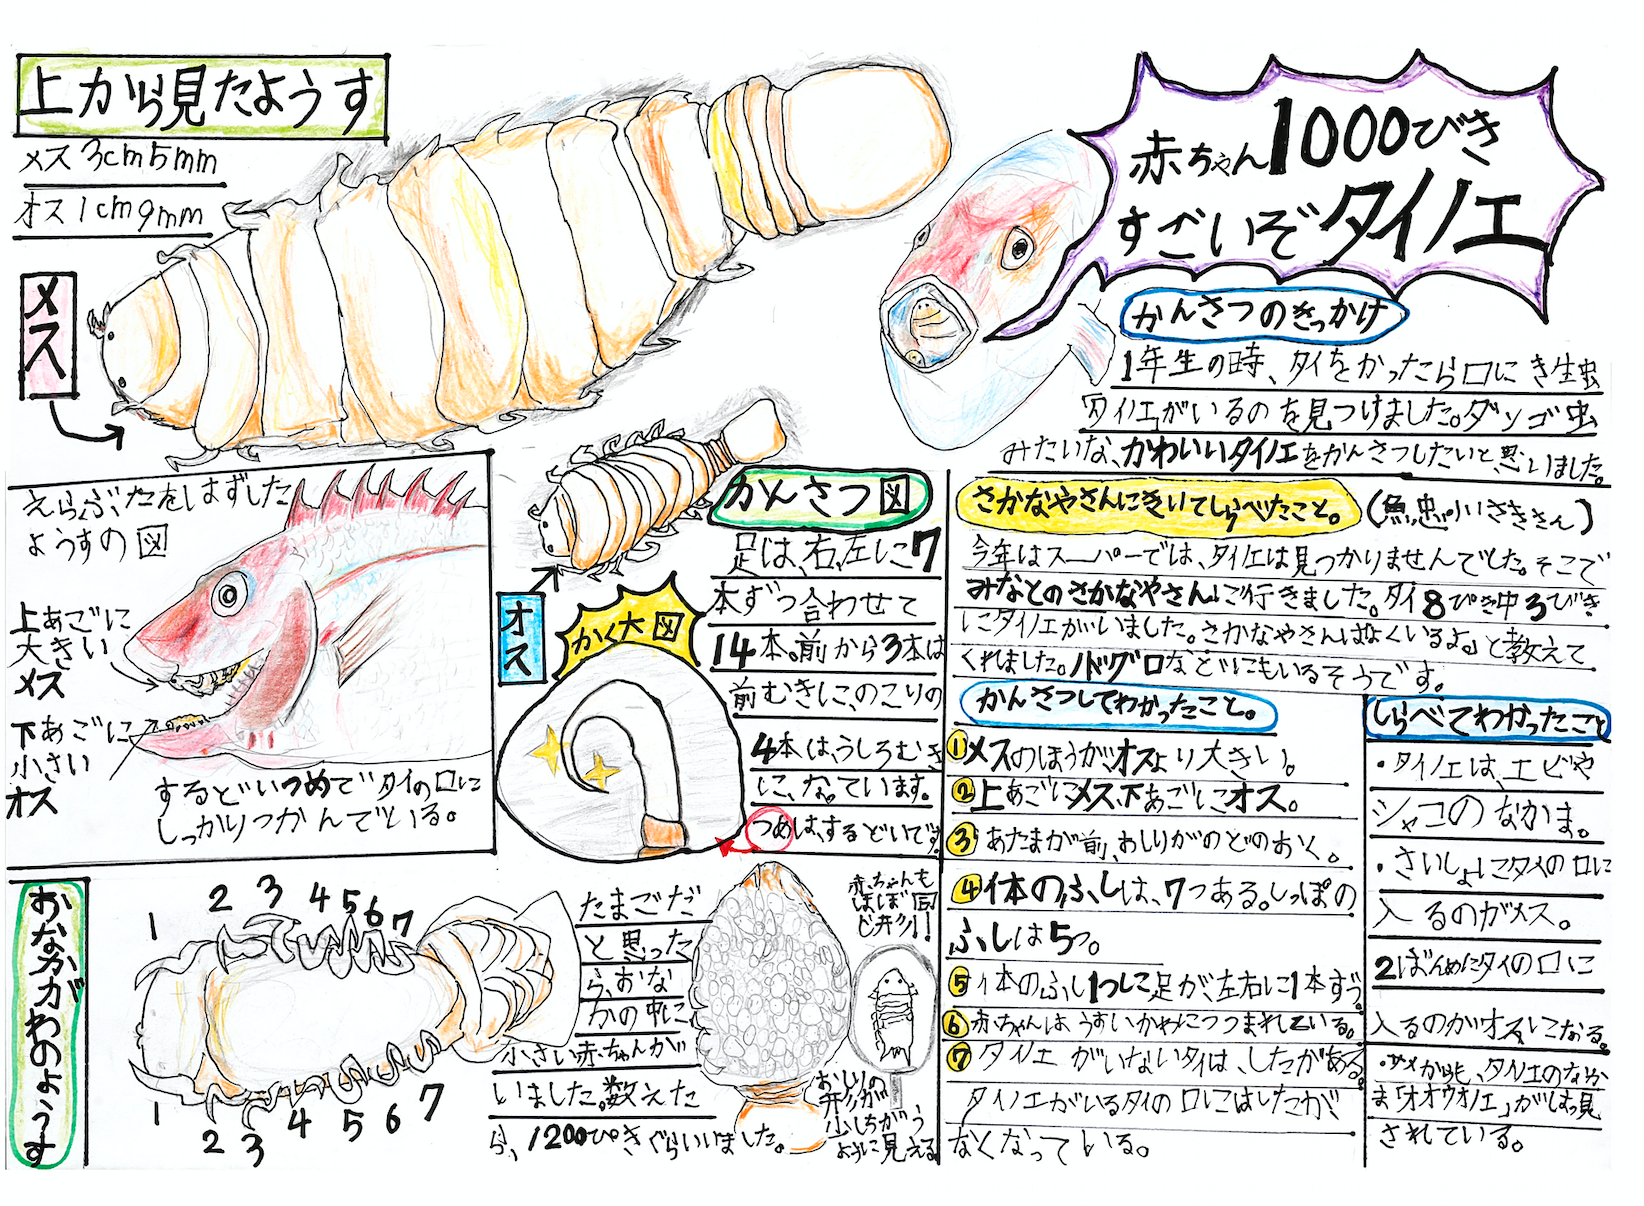 上から見たようす
メス3cm5mm
オス1cm9mm
メス
赤ちゃん1000びき
すごいぞタイノエ
かんさつのきっかけ
1年生の時、タイをかったら口にき生虫
「タイノエ」がいるのを見つけました。ダンゴ虫
みたいな、かわいいタイノエをかんさつしたいと、思いました。
えらぶたをはずした
ようすの図
上あごに
大きい
メス
下あごに
小さい
オス
するどいつめでタイの口に
しっかりつかんでいる。
オス
かく大図
かんさつ図
足は、右、左に7
本ずつ合わせて
14本。前から3本は
前むきに、のこりの
4本は、うしろむき
に、なっています。
つめは、するどいです。
さかなやさんにきいてしらべたこと。
(魚忠小いさききん)
今年はスーパーでは、タイノエは見つかりませんでした。そこで
みなとのさかなやさんに行きました。タイ8ぴき中3びき
にタイノエがいました。さかなやさんは「よくいるよ。」と教えて
くれました。ノドグロなどにもいるそうです。
かんさつしてわかったこと。
①メスのほうがオスより大きい。
②上あごにメス、下あごにオス。
③あたまが前、おしりがのどのおく。
④体のふしは、7つある。しっぽの
ふしは5つ。
⑤体のふし1つに足が、左右に1本ずつ。
⑥赤ちゃんはうすいかわにつつまれている。
⑦タイノエがいないタイは、したがある。
タイノエがいるタイの口にはしたが
なくなっている。
しらべてわかったこと
・タイノエは、エビや
シャコのなかま。
・さいしょにタイの口に
入るのがメス。
2ばんめにタイの口に
入るのがオスになる。
・サメからも、タイノエのなか
ま「オオウオノエ」がはっ見
されている。
おなかがわのようす
1 2 3 4 5 6 7
1 2 3 4 5 6 7
たまごだ
と思った
ら、おな
かの中に
小さい赤ちゃんが
いました。数えた
ら、1200ぴきぐらいいました。
赤ちゃんも
ほぼ同
じ形!
おしりの
形が
少しちがう
ように見える